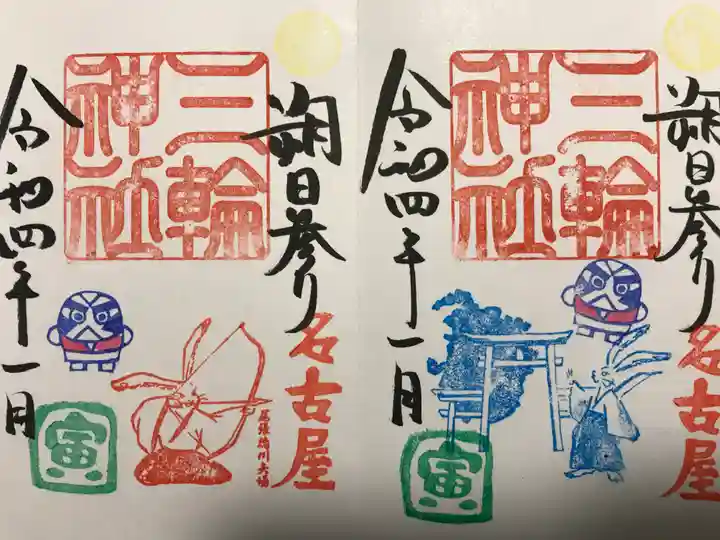 朔日参り
名古屋
三輪
神社
令和四年一月
寅
朔日参り
名古屋
三輪
神社
令和四年一月
寅